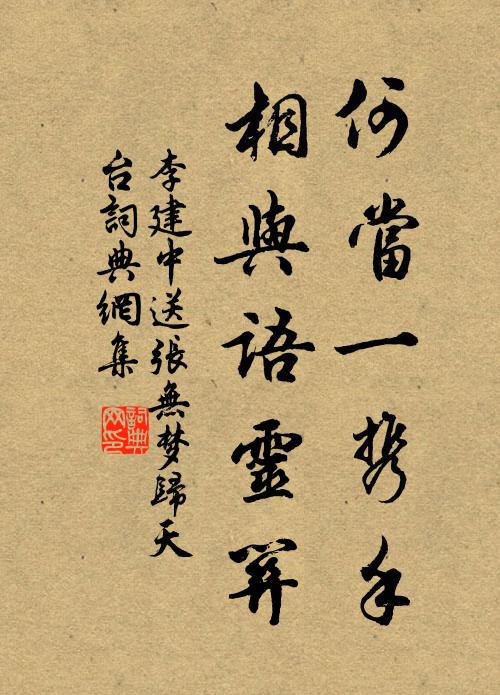 何當一携手
相與語靈
李建中送張無梦歸天
台詞典網集
詞典
网印